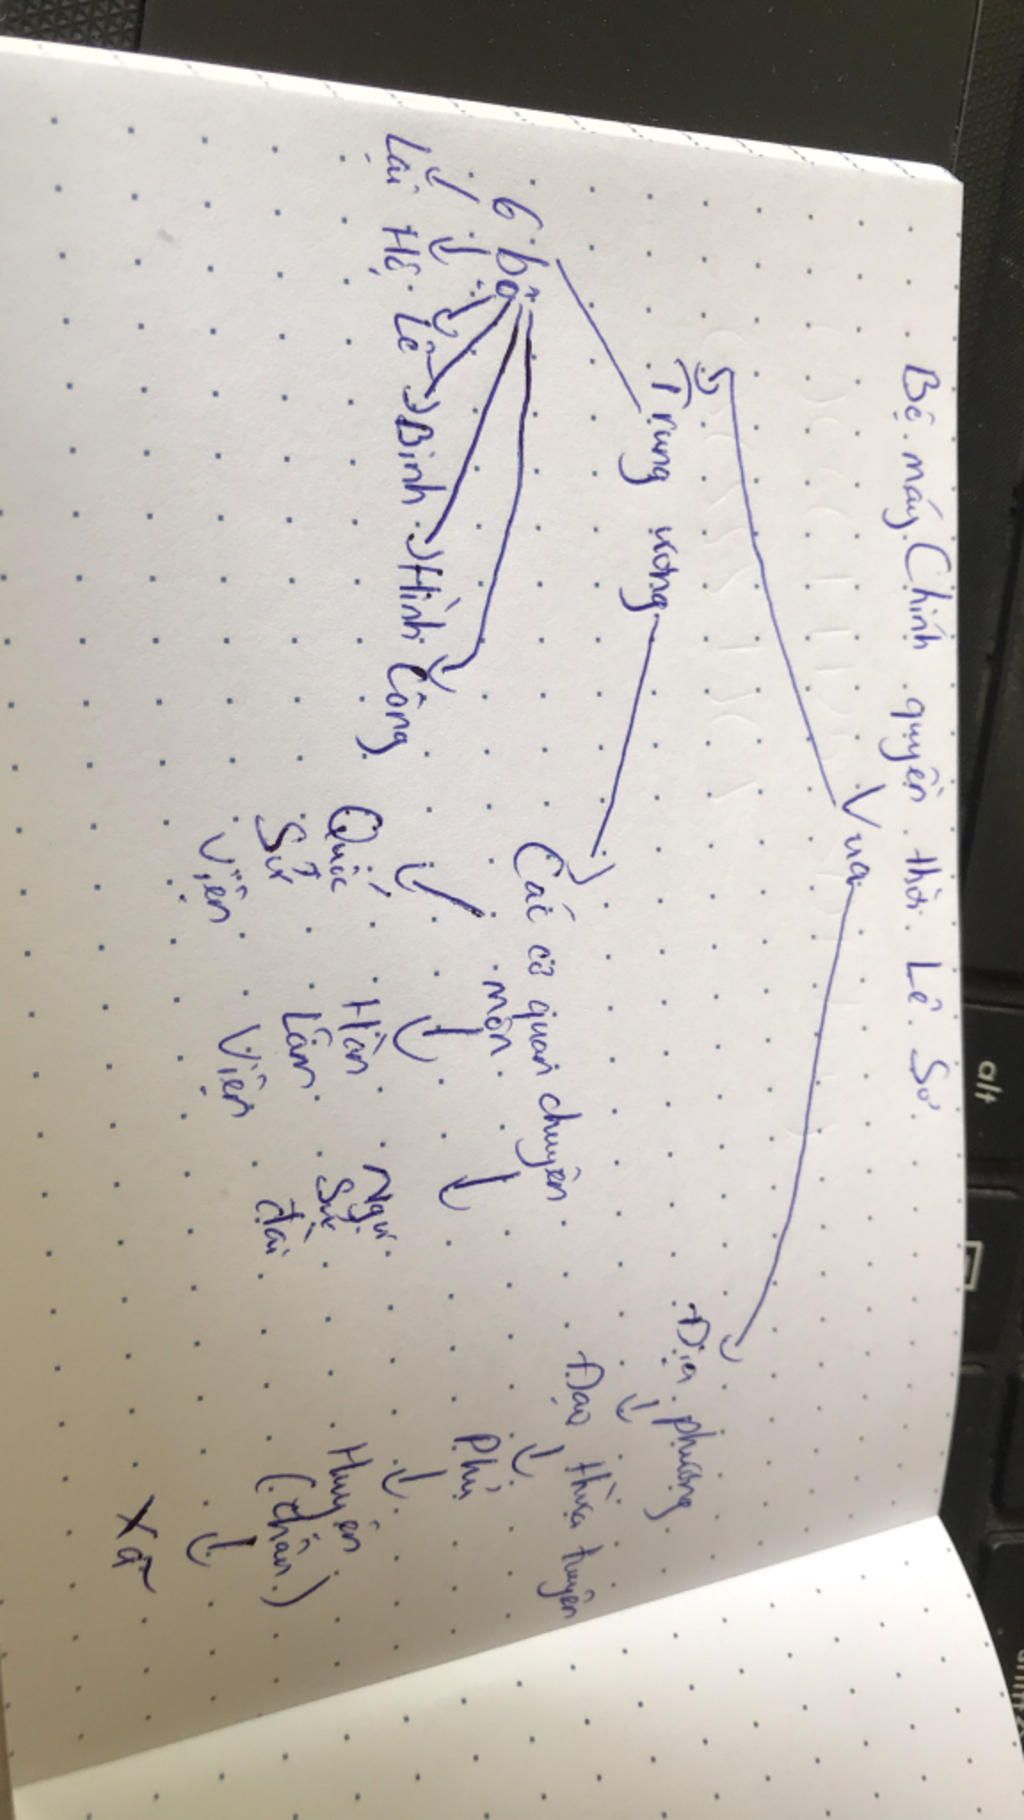 Bộ máy Chính quyền thời Lê Sơ
Vua
Trung ương
Địa phương
6 bộ
Các cơ quan chuyên
môn
Đạo thừa tuyên
Lại Hộ Lễ Binh Hình Công
Phủ
Quốc
Sử
Viện
Hàn
Lâm
Viện
Ngự
Sử
đài
Huyện
(châu)
Xã
alt